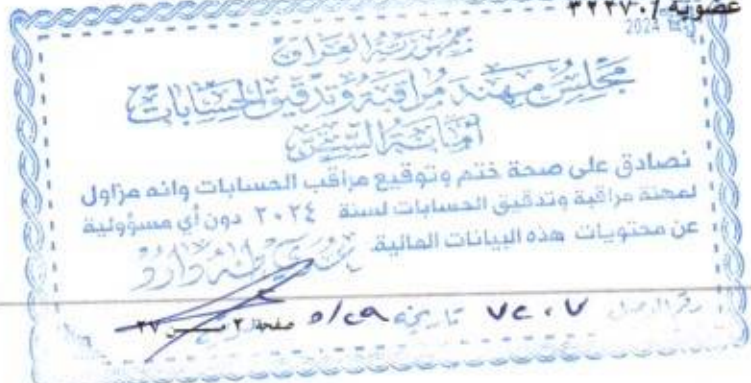 عضوية / ٣٢٢٧٠
2024
جمهورية العراق
مجلس مهنة مراقبة وتدقيق الحسابات
أمانة السجل
نصادق على صحة ختم وتوقيع مراقب الحسابات وانه مزاول
لمهنة مراقبة وتدقيق الحسابات لسنة ٢٠٢٤ دون أي مسؤولية
عن محتويات هذه البيانات المالية.
طه داود
رقم الوصل ٧٢٠٧ تاريخه ٥/٢٩ صفحة ٢ من ٢٧